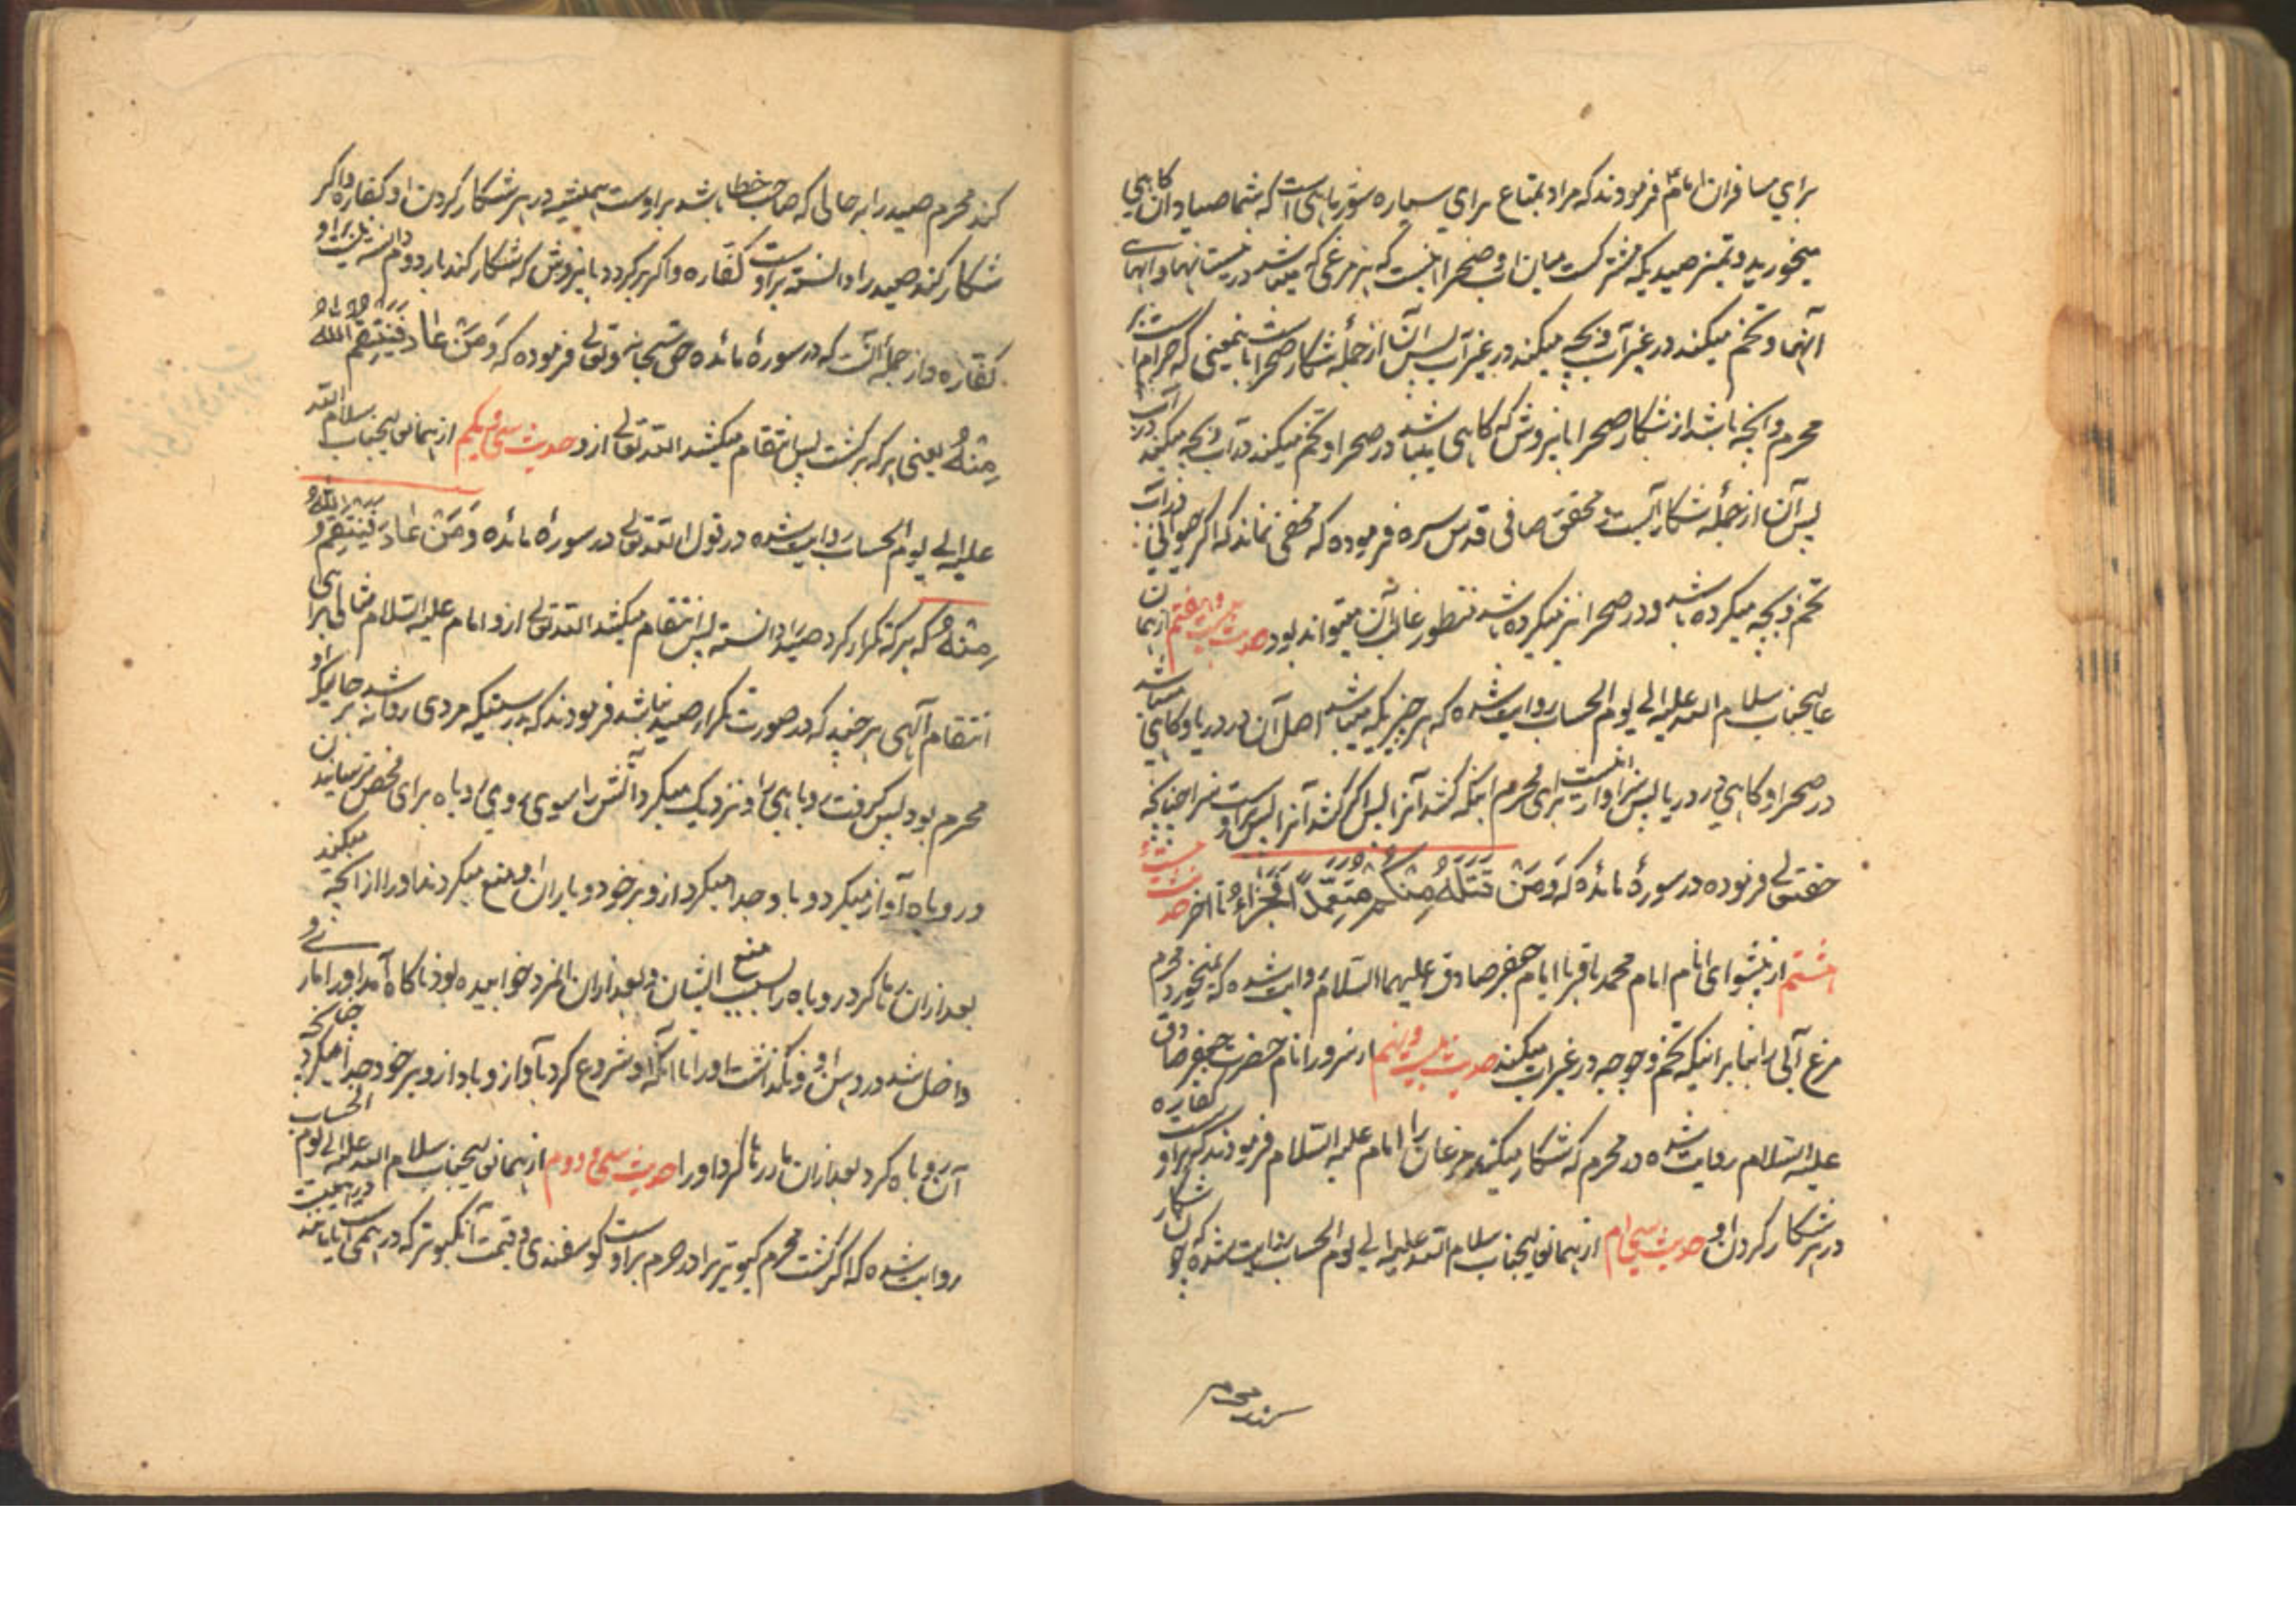 برای مسافران امام فرمودند که مراد بمتاع برای سیاره شور ماهی است که شما صیادان کاهی
میخورید و تمیز صیدیکه مشترکست میان آب و صحرا اینست که هر مرغی که میباشد در نیستانها و
آنها و تخم میکند در غیر آب و بچه میکند در غیر آب پس آن از جملهٔ شکار صحراست باینمعنی که حرام است بر
محرم و آنچه باشد از شکار صحرا باینروش که کاهی میباشد در صحرا و تخم میکند در آب و بچه میکند در آب
پس آن از جملهٔ شکار آبست و محقق صافی قدس سره فرموده که مخفی نماند که اگر حیوانی در آب
تخم و بچه میکرده باشد و در صحرا نیز میکرده باشد منظور غالب آن میتواند بود حدیث بیست و هفتم از همان
عالیجناب سلام الله علیه الی یوم الحساب روایت شده که هر چیزیکه میباشد اصل آن در دریا و کاهی میباشد
در صحرا و کاهی در دریا پس سزاوار نیست برای محرم اینکه کشد آنرا پس اگر کشد آنرا پس بر اوست سزا چنانچه
حقتعالی فرموده در سورهٔ مائده که وَمَنْ قَتَلَهُ مِنْكُمْ مُتَعَمِّدًا فَجَزَاءٌ تا آخر حدیث بیست
هشتم از پیشوای انام امام محمد باقر یا امام جعفر صادق علیهما السلام روایت شده که نمیخورد محرم
مرغ آبی را بنا بر اینکه تخم و جوجه در غیر آب میکند حدیث بیست و نهم از سرور انام حضرت جعفر صادق
علیه السلام روایت شده در محرم که شکار میکند مرغان را امام علیه السلام فرمودند که بر اوست کفاره
در هر شکار کردن او حدیث سی ام از همان عالیجناب سلام الله علیه الی یوم الحساب روایت شده که چون شکار
کند محرم
کند محرم صید را به حالی که صاحب خطا باشد بر اوست همیشه در هر شکار کردن او کفاره و اگر
شکار کند صید را دانسته بر اوست کفاره و اگر برگردد باینروش که شکار کند بار دوم دانسته نیست بر او
کفاره و از جملهٔ آنست که در سورهٔ مائده حق سبحانه و تعالی فرموده که وَمَنْ عَادَ فَيَنْتَقِمُ اللّٰهُ
مِنْهُ یعنی هر که برگشت پس انتقام میکشد الله تعالی ازو حدیث سی و یکم از همان عالیجناب سلام الله
علیه الی یوم الحساب روایت شده در قول الله تعالی در سورهٔ مائده وَمَنْ عَادَ فَيَنْتَقِمُ اللّٰهُ
مِنْهُ که هر که تکرار کرد صید را دانسته پس انتقام میکشد الله تعالی ازو امام علیه السلام مثالی برای
انتقام آلهی هر چند که در صورت تکرار صید نباشد فرمودند که بدرستیکه مردی روانه شد حالیکه او
محرم بود پس گرفت روباهی را و نزدیک میکرد آتش را بسوی روی روباه برای محض ترسانیدن
و روباه آواز میکرد و باد جدا میکرد از دبر خود و یاران او منع میکردند او را از آنچه میکند
بعد از آن رها کرد روباه را بسبب منع ایشان و بعد از آن آنمرد خوابیده بود ناکاه آمد او را مار و
داخل شد در دهن او و نگذاشت او را تا آنکه او شروع کرد بآواز و باد از دبر خود جدا میکرد چنانچه
آن روباه کرد بعد از آن مار رها کرد او را حدیث سی و دوم از همان عالیجناب سلام الله علیه الی یوم الحساب
روایت شده که اگر کشت محرم کبوتری را در حرم بر اوست گوسفندی و قیمت آن کبوتر که درهمی است یا مانند